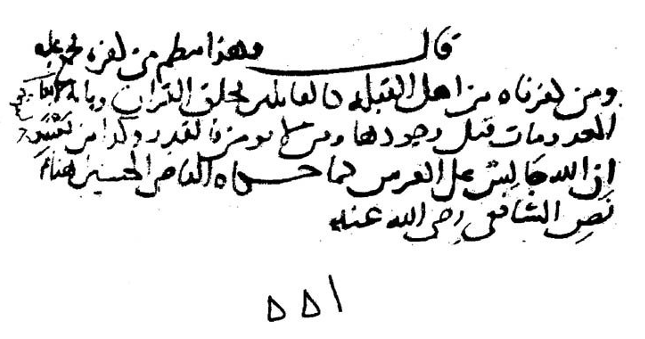 قال وهذا منتظم من كفره مجمع عليه
ومن كفرناه من اهل القبلة كالقائلين بخلق القران وبانه لا يعلم
المعدومات قبل وجودها ومن لا يومن بالقدر وكذا من يعتقد
ان الله جالس على العرش كما حكاه القاضي الحسين هنا عن
نص الشافعي رضي الله عنه
١٥٥